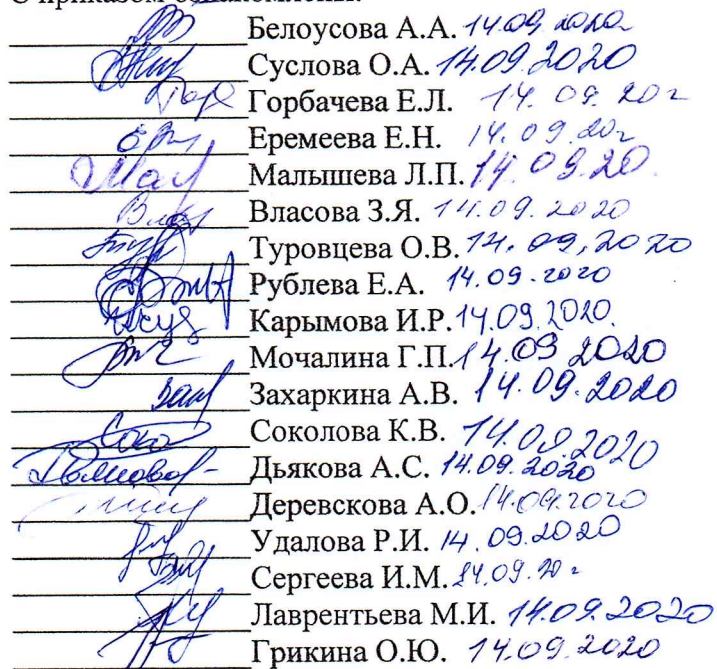 С приказом ознакомлены:
Белоусова А.А. 14.09 2020
Суслова О.А. 14.09.2020
Горбачева Е.Л. 14. 09. 20 г
Еремеева Е.Н. 14.09.20г
Малышева Л.П. 14.09.20.
Власова З.Я. 14.09.2020
Туровцева О.В. 14.09.2020
Рублева Е.А. 14.09.2020
Карымова И.Р. 14.09.2020.
Мочалина Г.П. 14.09 2020
Захаркина А.В. 14.09.2020
Соколова К.В. 14.09.2020
Дьякова А.С. 14.09.2020
Деревскова А.О. 14.09.2020
Удалова Р.И. 14.09.2020
Сергеева И.М. 14.09.20 г
Лаврентьева М.И. 14.09.2020
Грикина О.Ю. 14.09.2020